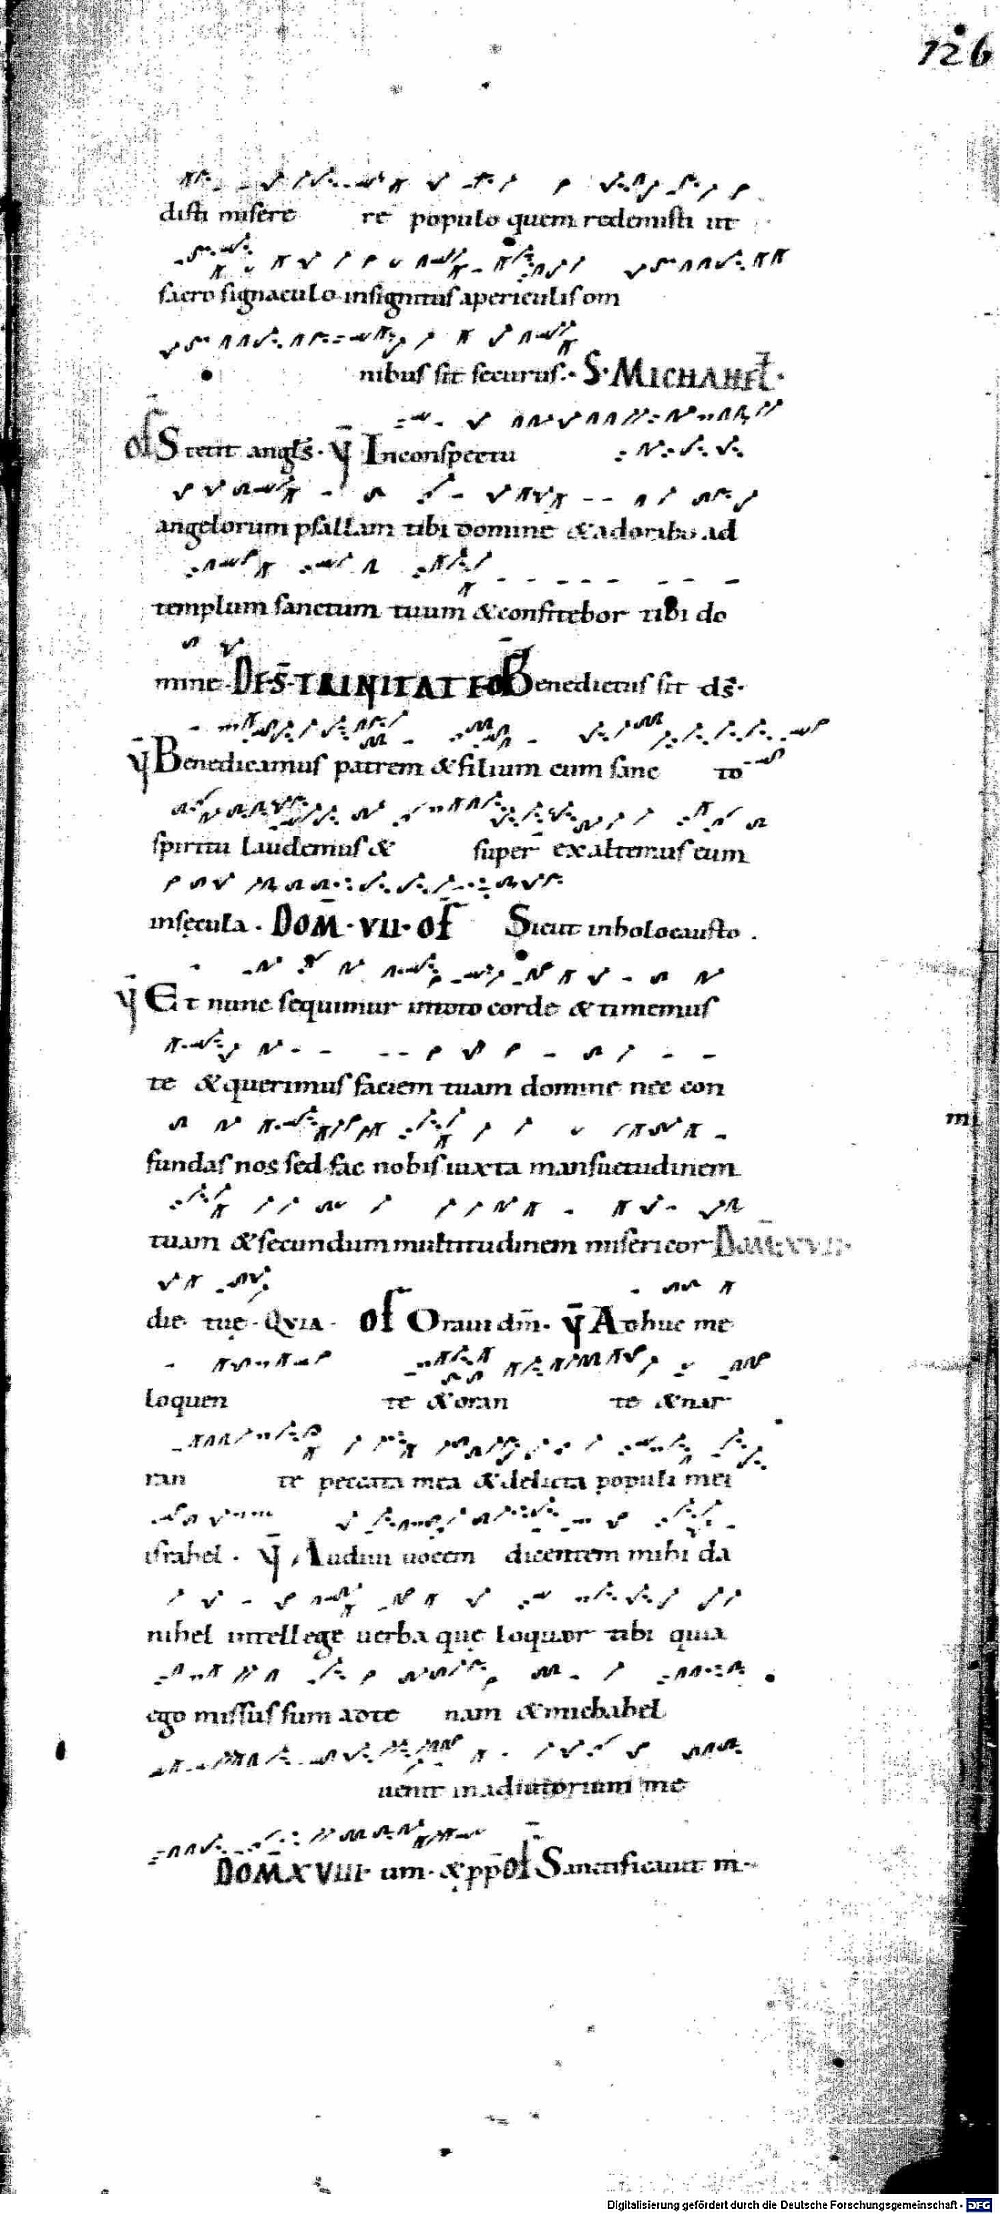 126
disti misere re populo quem redemisti ut
sacro signaculo insignitus apericulis om
nibus sit securus. S. MICHAHEL.
OF Stetit angls. V Inconspectu
angelorum psallam tibi domine & adorabo ad
templum sanctum tuum & confitebor tibi do
mine DE S. TRINITATE OF Benedictus sit ds.
V Benedicamus patrem & filium cum sanc to
spiritu Laudemus & super exaltemus eum
insęcula. DOM. VII. OF Sicut inholocausto.
V Et nunc sequimur intoto corde & timemus
te & querimus faciem tuam domine nec con
fundas nos sed fac nobis iuxta mansuetudinem
tuam & secundum multitudinem misericor DOM. XVII.
die tuę. QVIA. OF Oraui dm̄. V Adhuc me
loquen te & oran te & nar
ran te peccata mea & delicta populi mei
israhel. V Audiui uocem dicentem mihi da
nihel intellege uerba quę loquor tibi quia
ego missus sum adte nam & michahel
uenit inadiutorium me
DOM XVIII. um. & pp̄ OF Sanctificauit m.
Digitalisierung gefördert durch die Deutsche Forschungsgemeinschaft - DFG